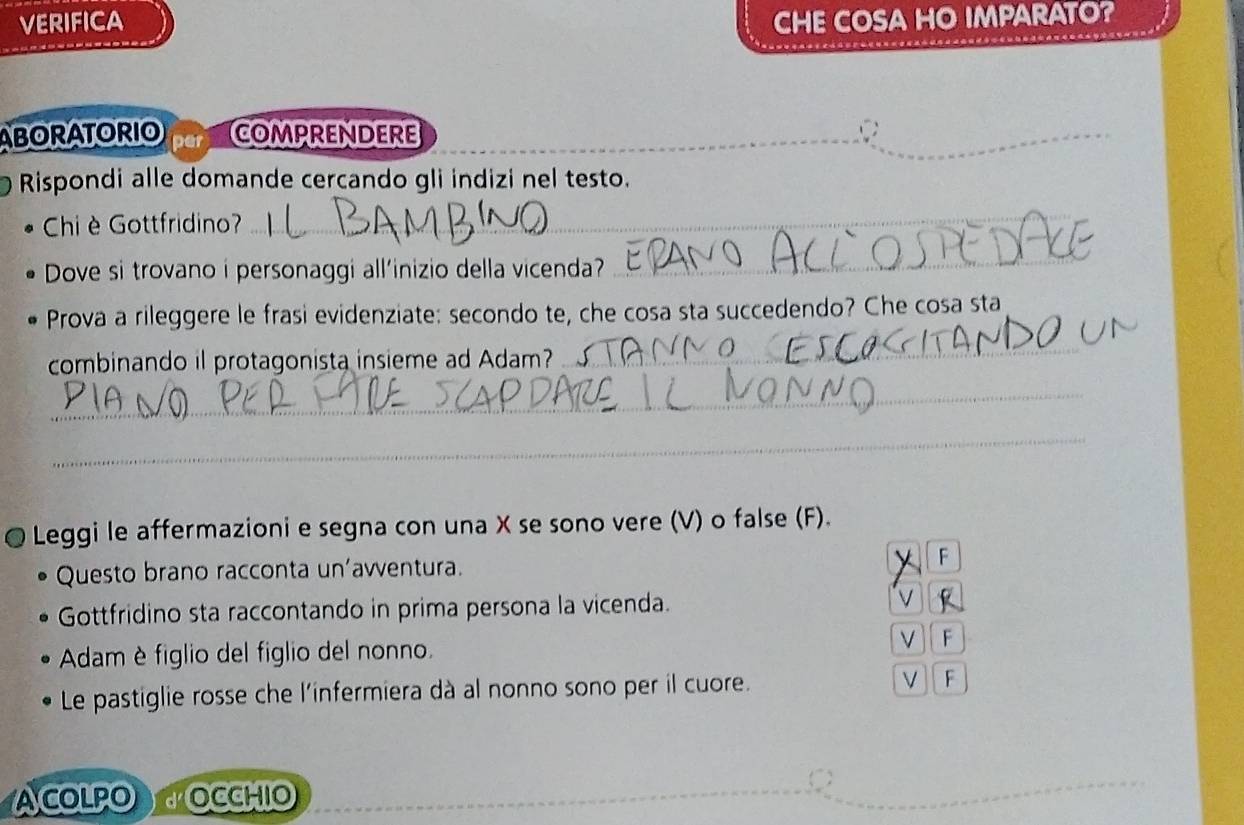 VERIFICA
CHE COSA HO IMPARATO?
ABORATORIO per COMPRENDERE
Rispondi alle domande cercando gli indizi nel testo.
• Chi è Gottfridino? IL BAMBINO
• Dove si trovano i personaggi all'inizio della vicenda? ERANO ALL'OSPEDALE
• Prova a rileggere le frasi evidenziate: secondo te, che cosa sta succedendo? Che cosa sta
combinando il protagonista insieme ad Adam? STANNO ESCOGITANDO UN
PIANO PER FARE SCAPPARE IL NONNO
Leggi le affermazioni e segna con una X se sono vere (V) o false (F).
• Questo brano racconta un'avventura. V F
• Gottfridino sta raccontando in prima persona la vicenda. V F
• Adam è figlio del figlio del nonno. V F
• Le pastiglie rosse che l'infermiera dà al nonno sono per il cuore. V F
A COLPO d'OCCHIO